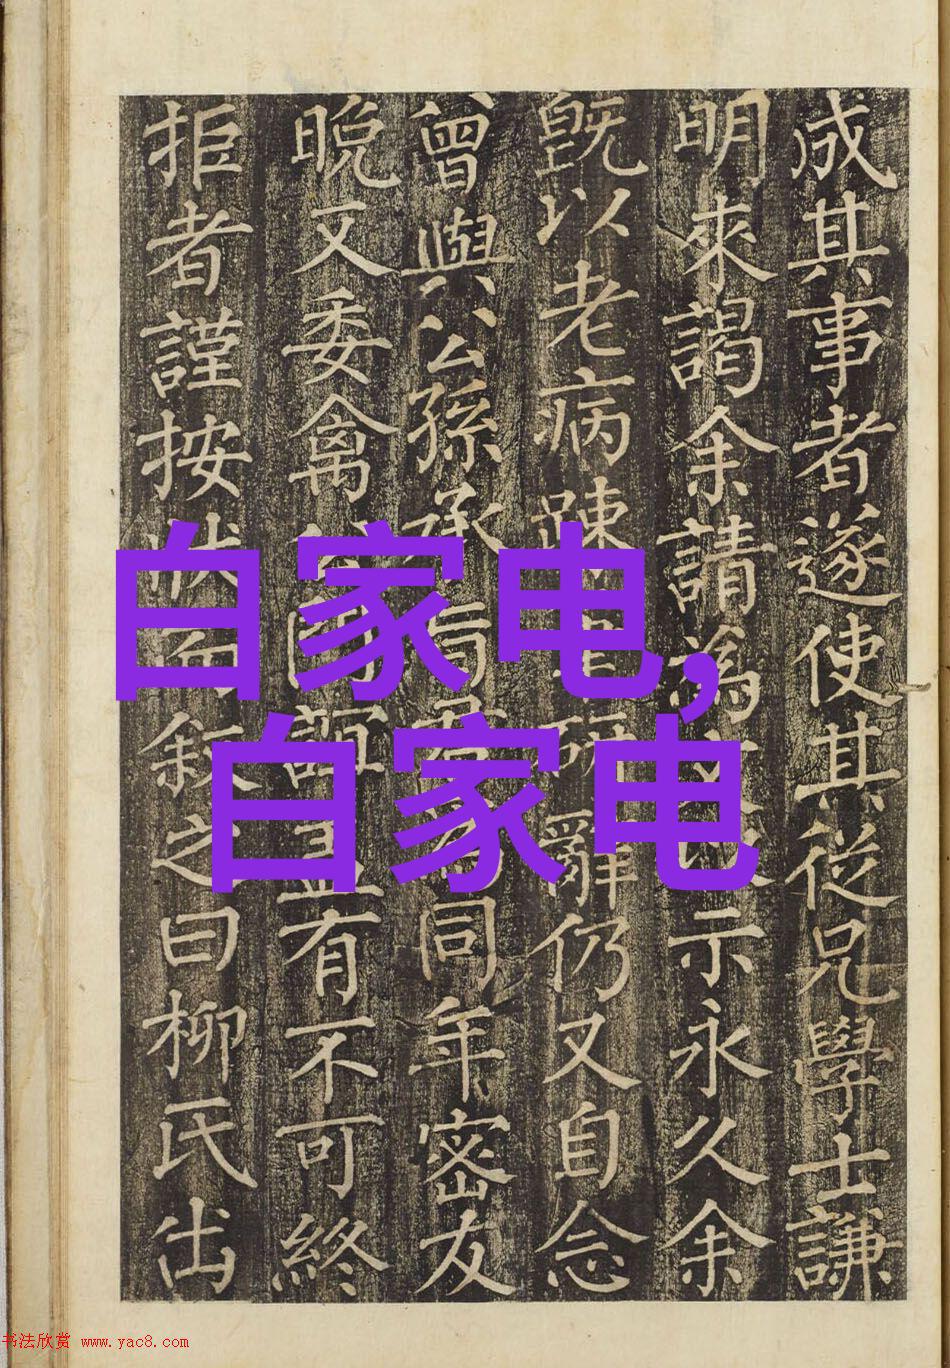 成其事者遂使其從兄學士謙
明來謁余請為示永久余
旣以老病踈研辭仍又自念
曾與公孫承同年密友
晚又委禽國誼並有不可終
拒者謹按狀而叙之曰柳氏出
白家电,
白家电
书法欣赏 www.yac8.com